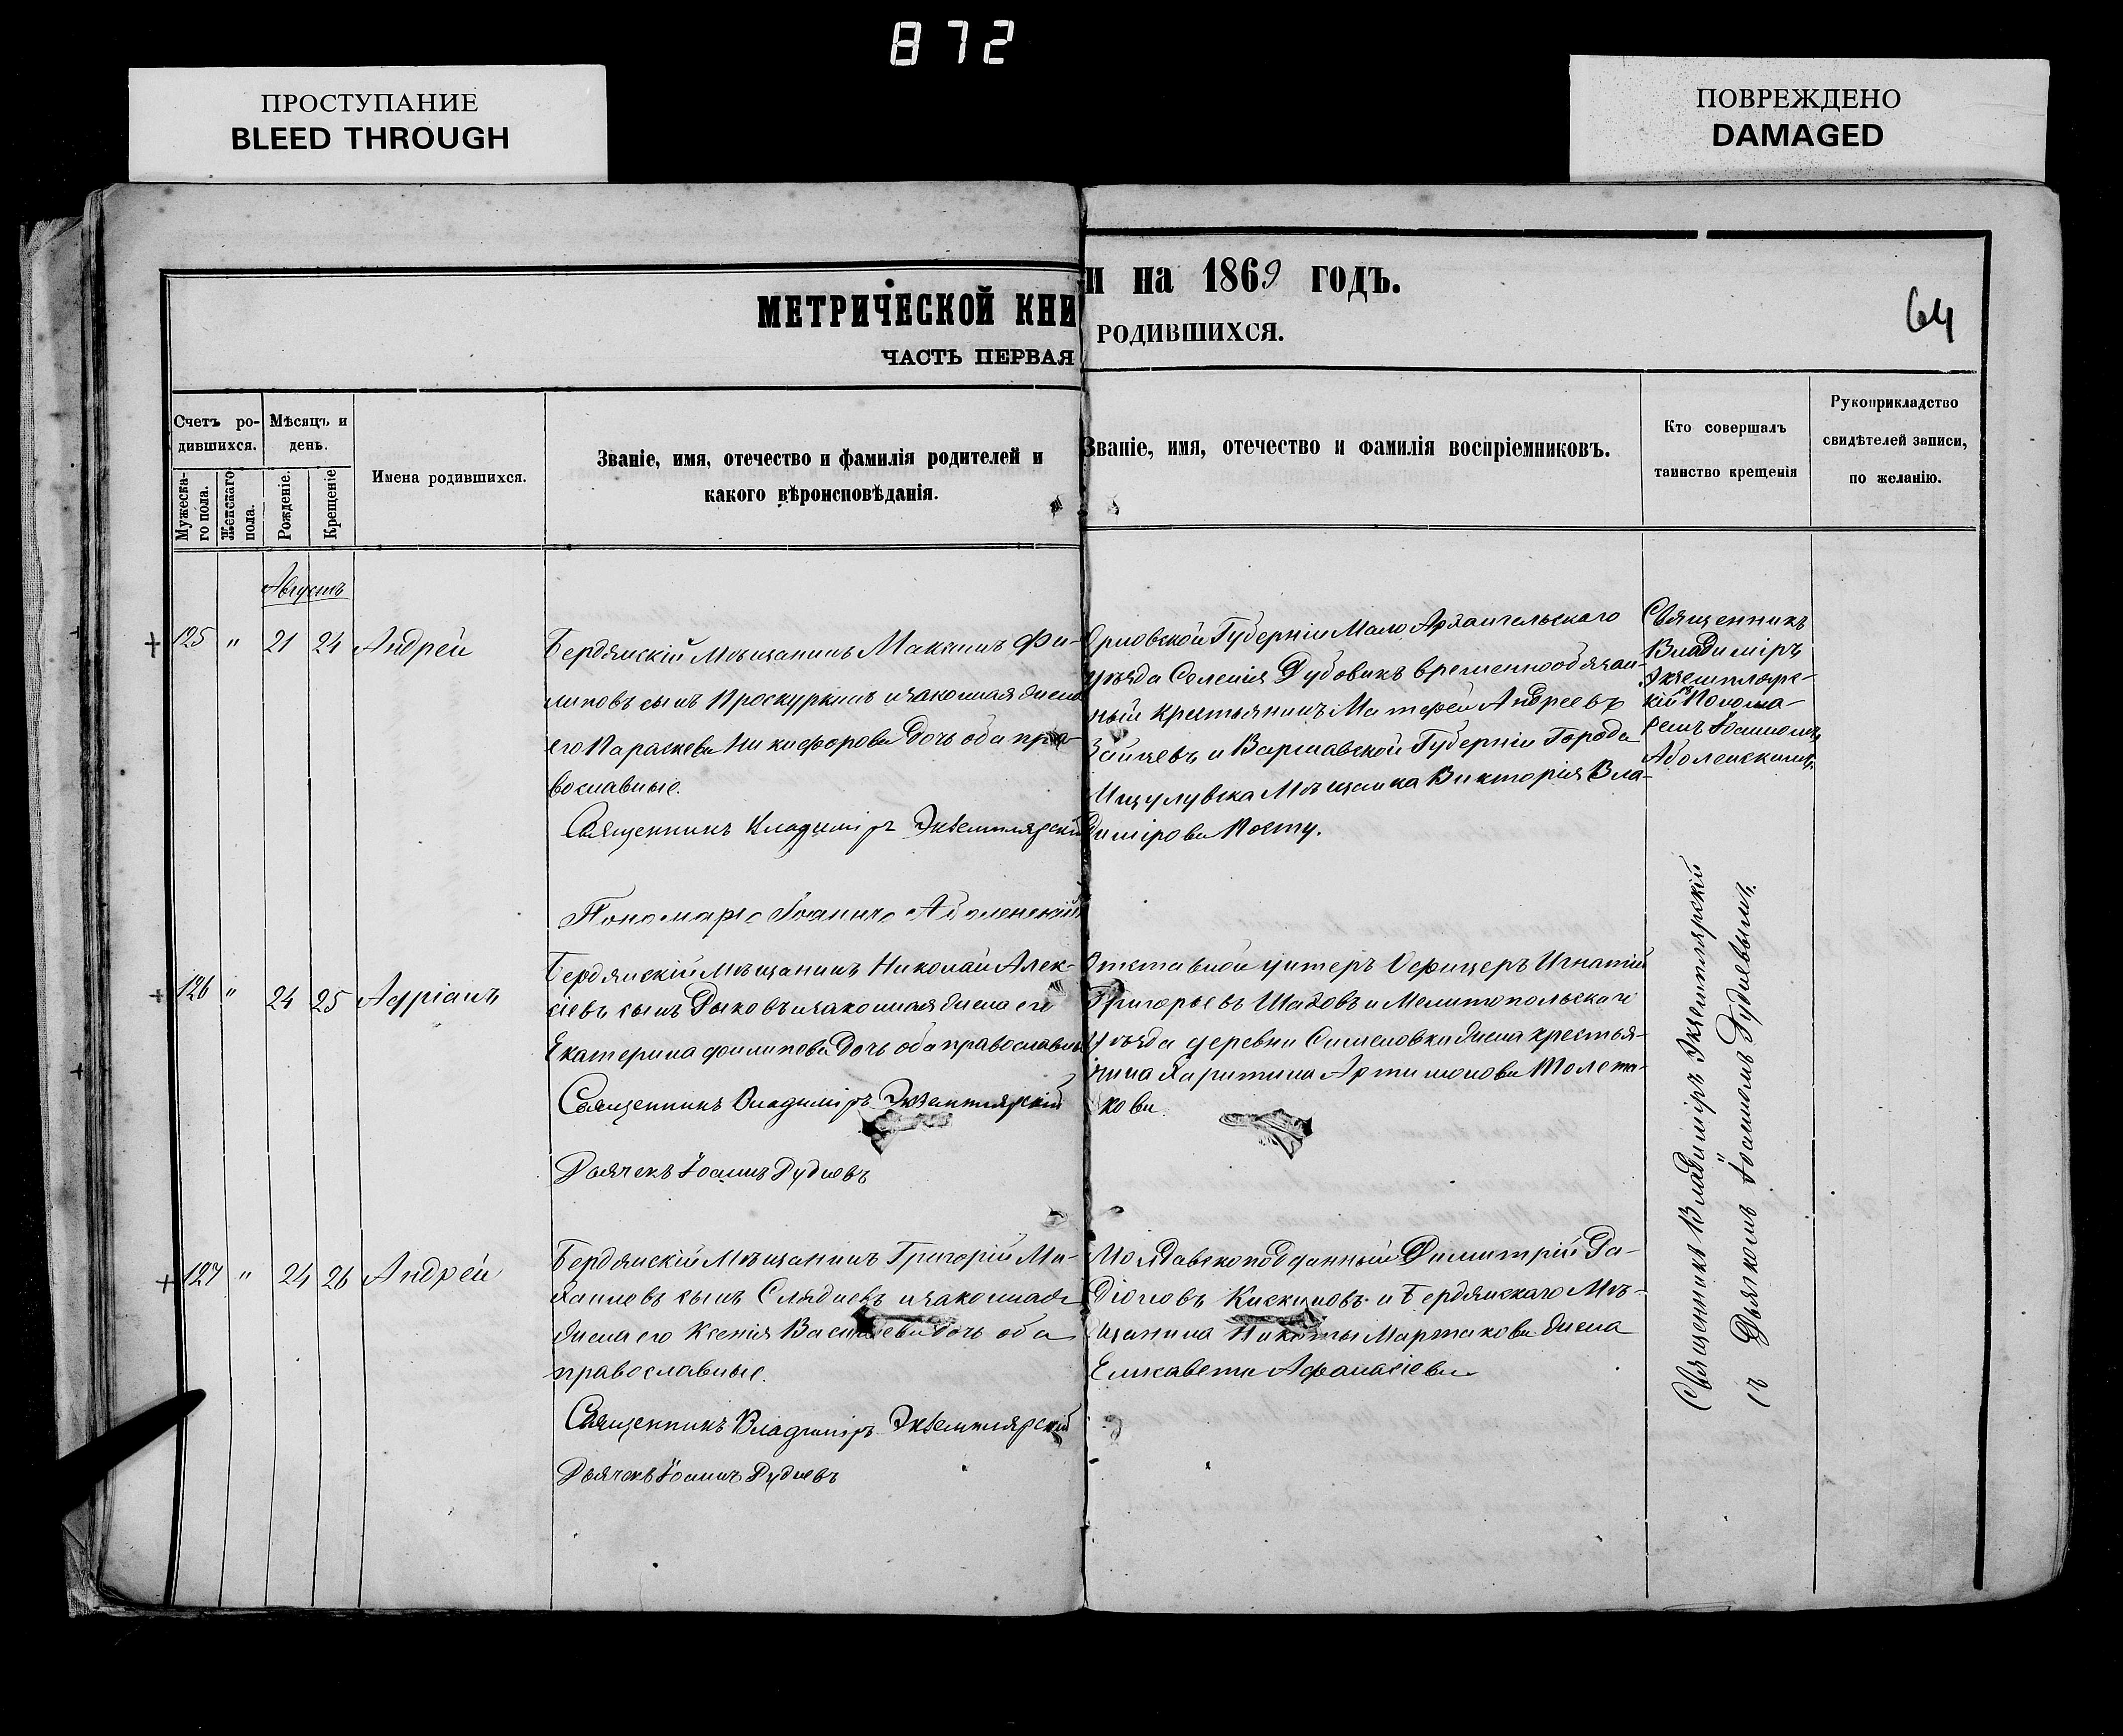 872
ПРОСТУПАНИЕ
BLEED THROUGH
ПОВРЕЖДЕНО
DAMAGED
МЕТРИЧЕСКОЙ КНИ
ЧАСТЬ ПЕРВАЯ
И на 1869 годъ.
РОДИВШИХСЯ.
64
Счетъ ро-
дившихся.
Мужеска-
го пола.
Женскаго
пола.
Мѣсяцъ и
день.
Рожденіе.
Крещеніе
Имена родившихся.
Званіе, имя, отечество и фамилія родителей и
какого вѣроисповѣданія.
Званіе, имя, отечество и фамилія воспріемниковъ.
Кто совершалъ
таинство крещенія
Рукоприкладство
свидѣтелей записи,
по желанію.
Августъ
125 " 21 24 Андрей
Бердянскій Мѣщанинъ Максимъ Фи-
липовъ сынъ Проскуркинъ и законная жена
его Параскева Никифорова дочь оба пра-
вославные.
Священникъ Владиміръ Экземплярскій
Пономарь Іоаннъ Аболенскій
Орловской Губерніи Мало Архангельскаго
уѣзда Селенія Дубовикъ временнообязан-
ный крестьянинъ Матфей Андреевъ
Зайцевъ и Варшавской Губерніи Города
Мѣщанка Викторія Вла-
димірова Посту.
Священникъ
Владиміръ
Экземпляре-
кій съ Понома-
ремъ Іоанномъ
Аболенскимъ.
126 " 24 25 Адріанъ
Бердянскій Мѣщанинъ Николай Алек-
сіевъ сынъ Дыковъ и законная жена его
Екатерина Филипова дочь оба православные
Священникъ Владиміръ Экземплярскій
Дьячекъ Іоаннъ Дудневъ
Отставной унтеръ Офицеръ Игнатій
Григорьевъ Шадовъ и Мелитопольскаго
уѣзда деревни жена крестья-
нина Харитина Артимонова Толста-
кова.
127 " 24 26 Андрей
Бердянскій Мѣщанинъ Григорій Ми-
хаиловъ сынъ Слядневъ и законная
жена его Ксенія Васильева дочь оба
православные.
Священникъ Владиміръ Экземплярскій
Дьячекъ Іоаннъ Дудневъ
Молдавскоподданный Димитрій Ра-
діоновъ Кискиновъ и Бердянскаго Мѣ-
щанина Никиты Мартакова жена
Елисавета Афанасіева
Священникъ Владиміръ Экземплярскій
съ Дьячкомъ Іоанномъ Дудневымъ.